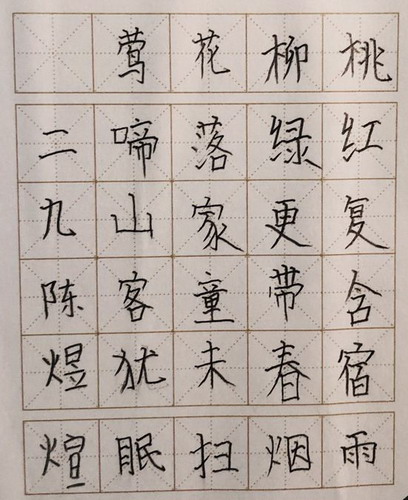 桃红复含宿雨
柳绿更带春烟
花落家童未扫
莺啼山客犹眠
二九陈煜煊